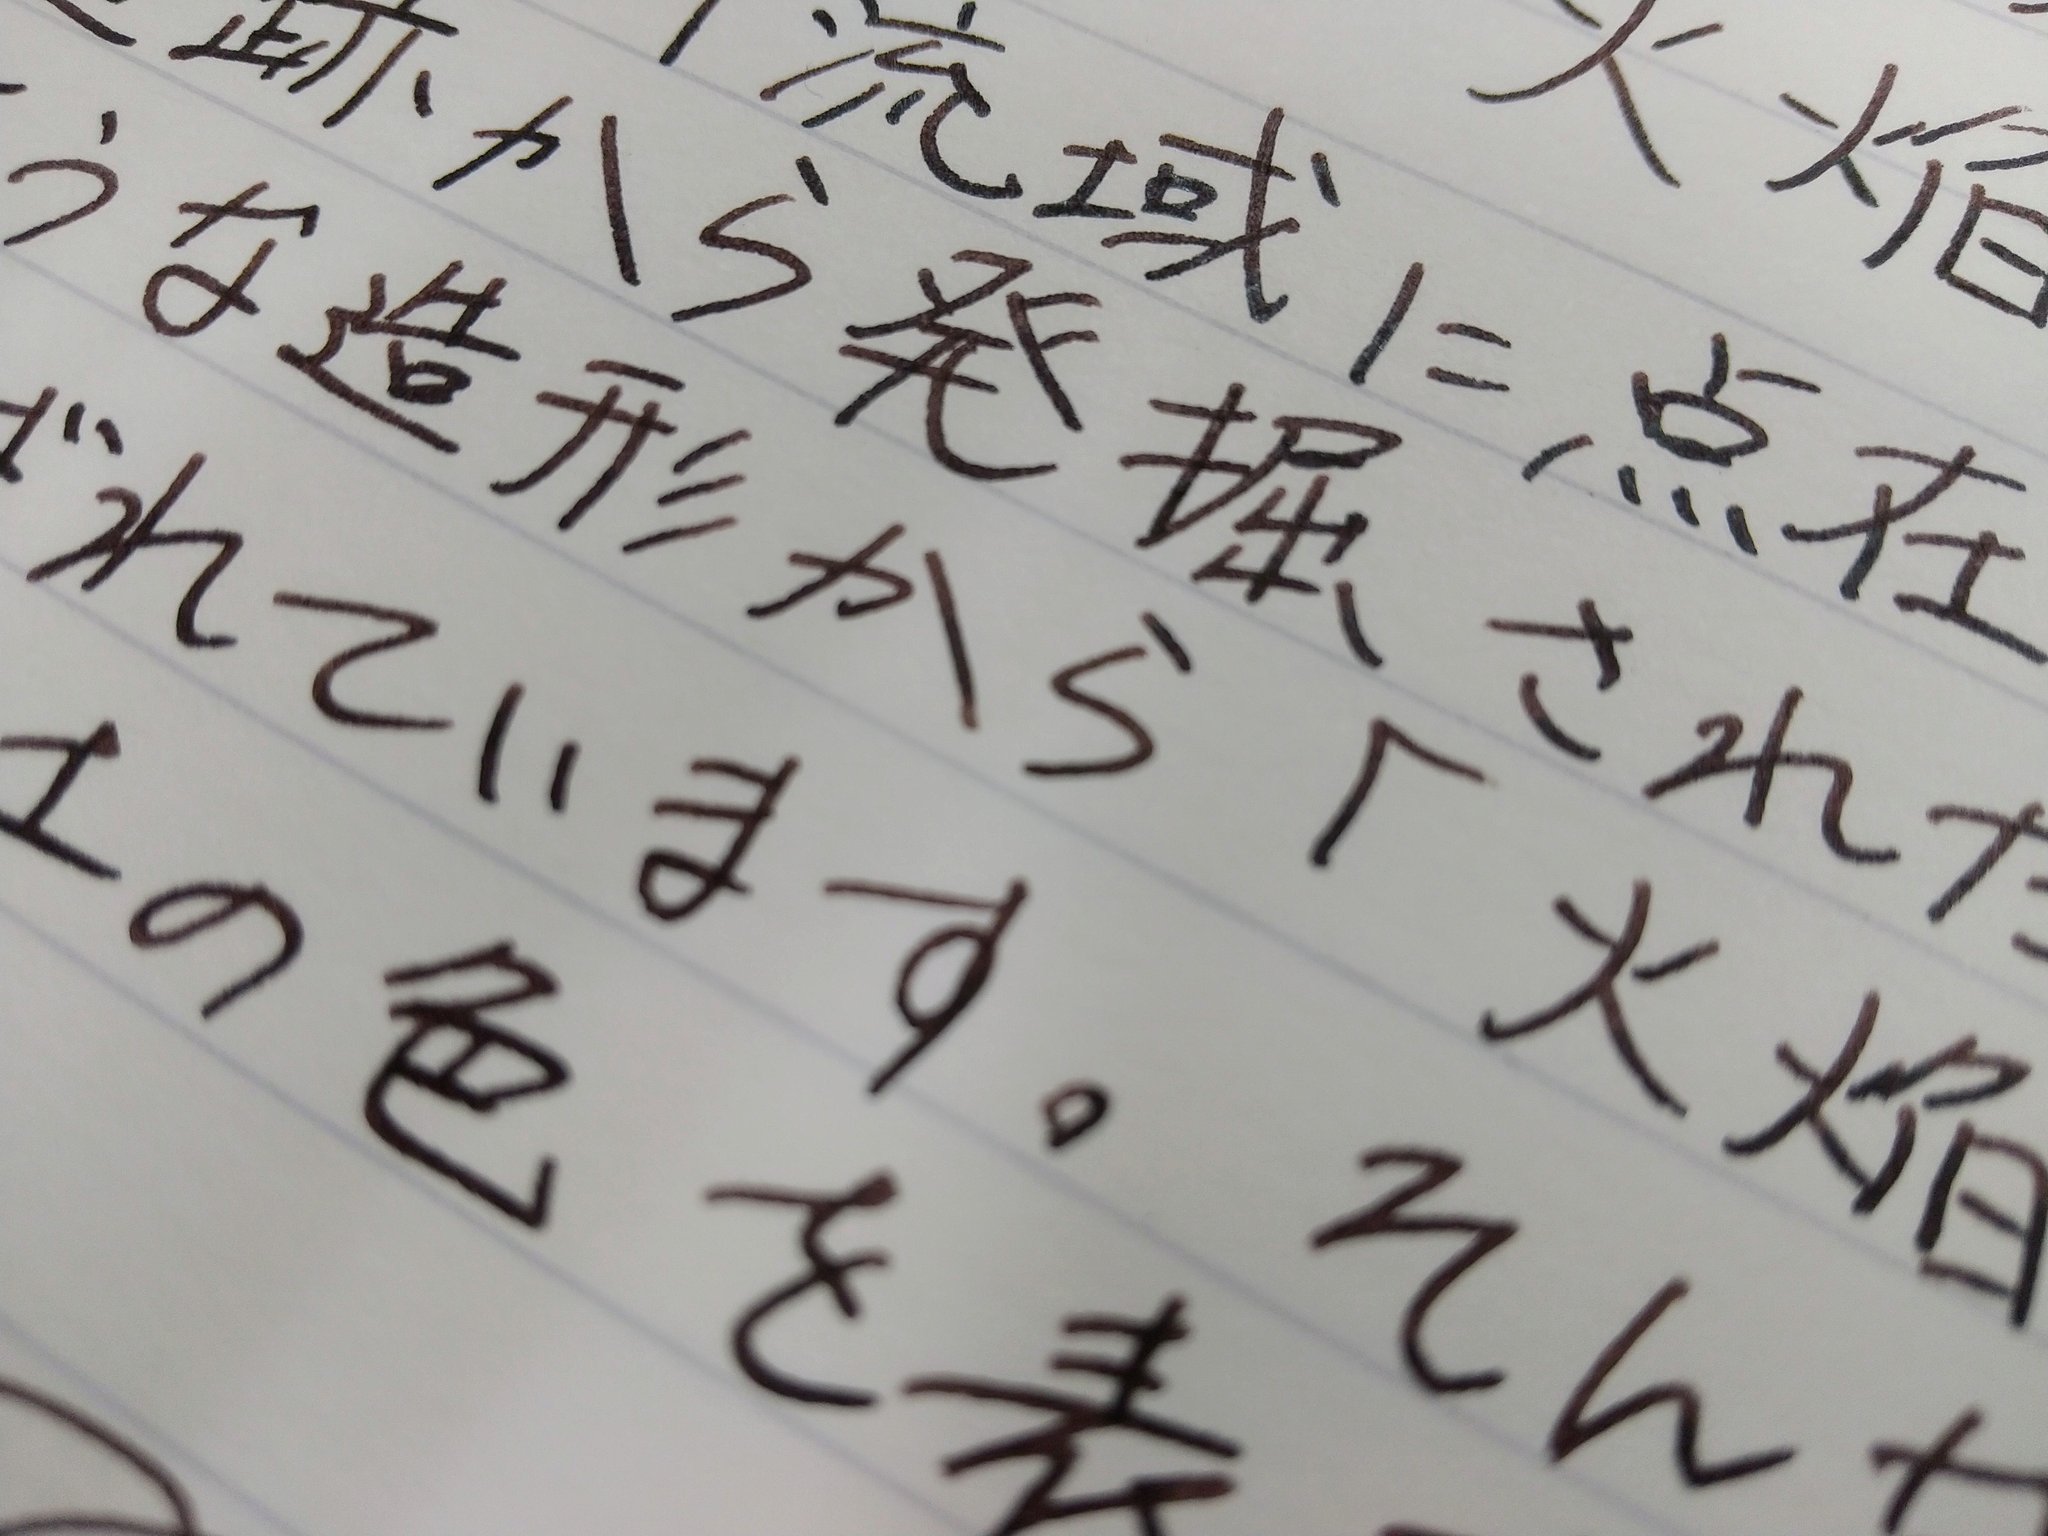 火焔
流域に点在
跡から発掘された
うな造形から「火焔
ばれています。そんな
土の色を表